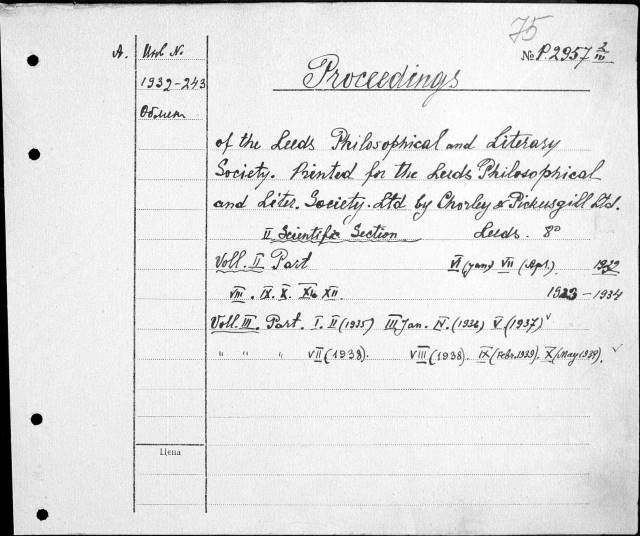 75
№ P.2957 2/III
A. Инв N.
1932-243
Обмен
Proceedings
of the Leeds Philosophical and Literary
Society. Printed for the Leeds Philosophical
and Liter. Society. Ltd by Chorley & Pickersgill Ltd.
II Scientific Section Leeds. 8°
Voll. II Part VI (jan) VII (Apr.) 1932
VIII. IX. X. XI. XII. 1933-1934
Voll. III. Part. I. II (1935) III Jan. IV. (1936) V (1937) ✓
" " " VII (1938). VIII (1938). IX (Febr. 1939). X (May 1939). ✓
Цена